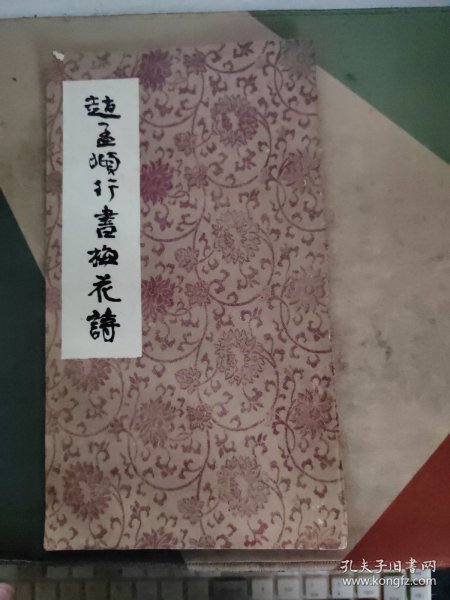 趙孟頫行書梅花詩
孔夫子旧书网
www.kongfz.com